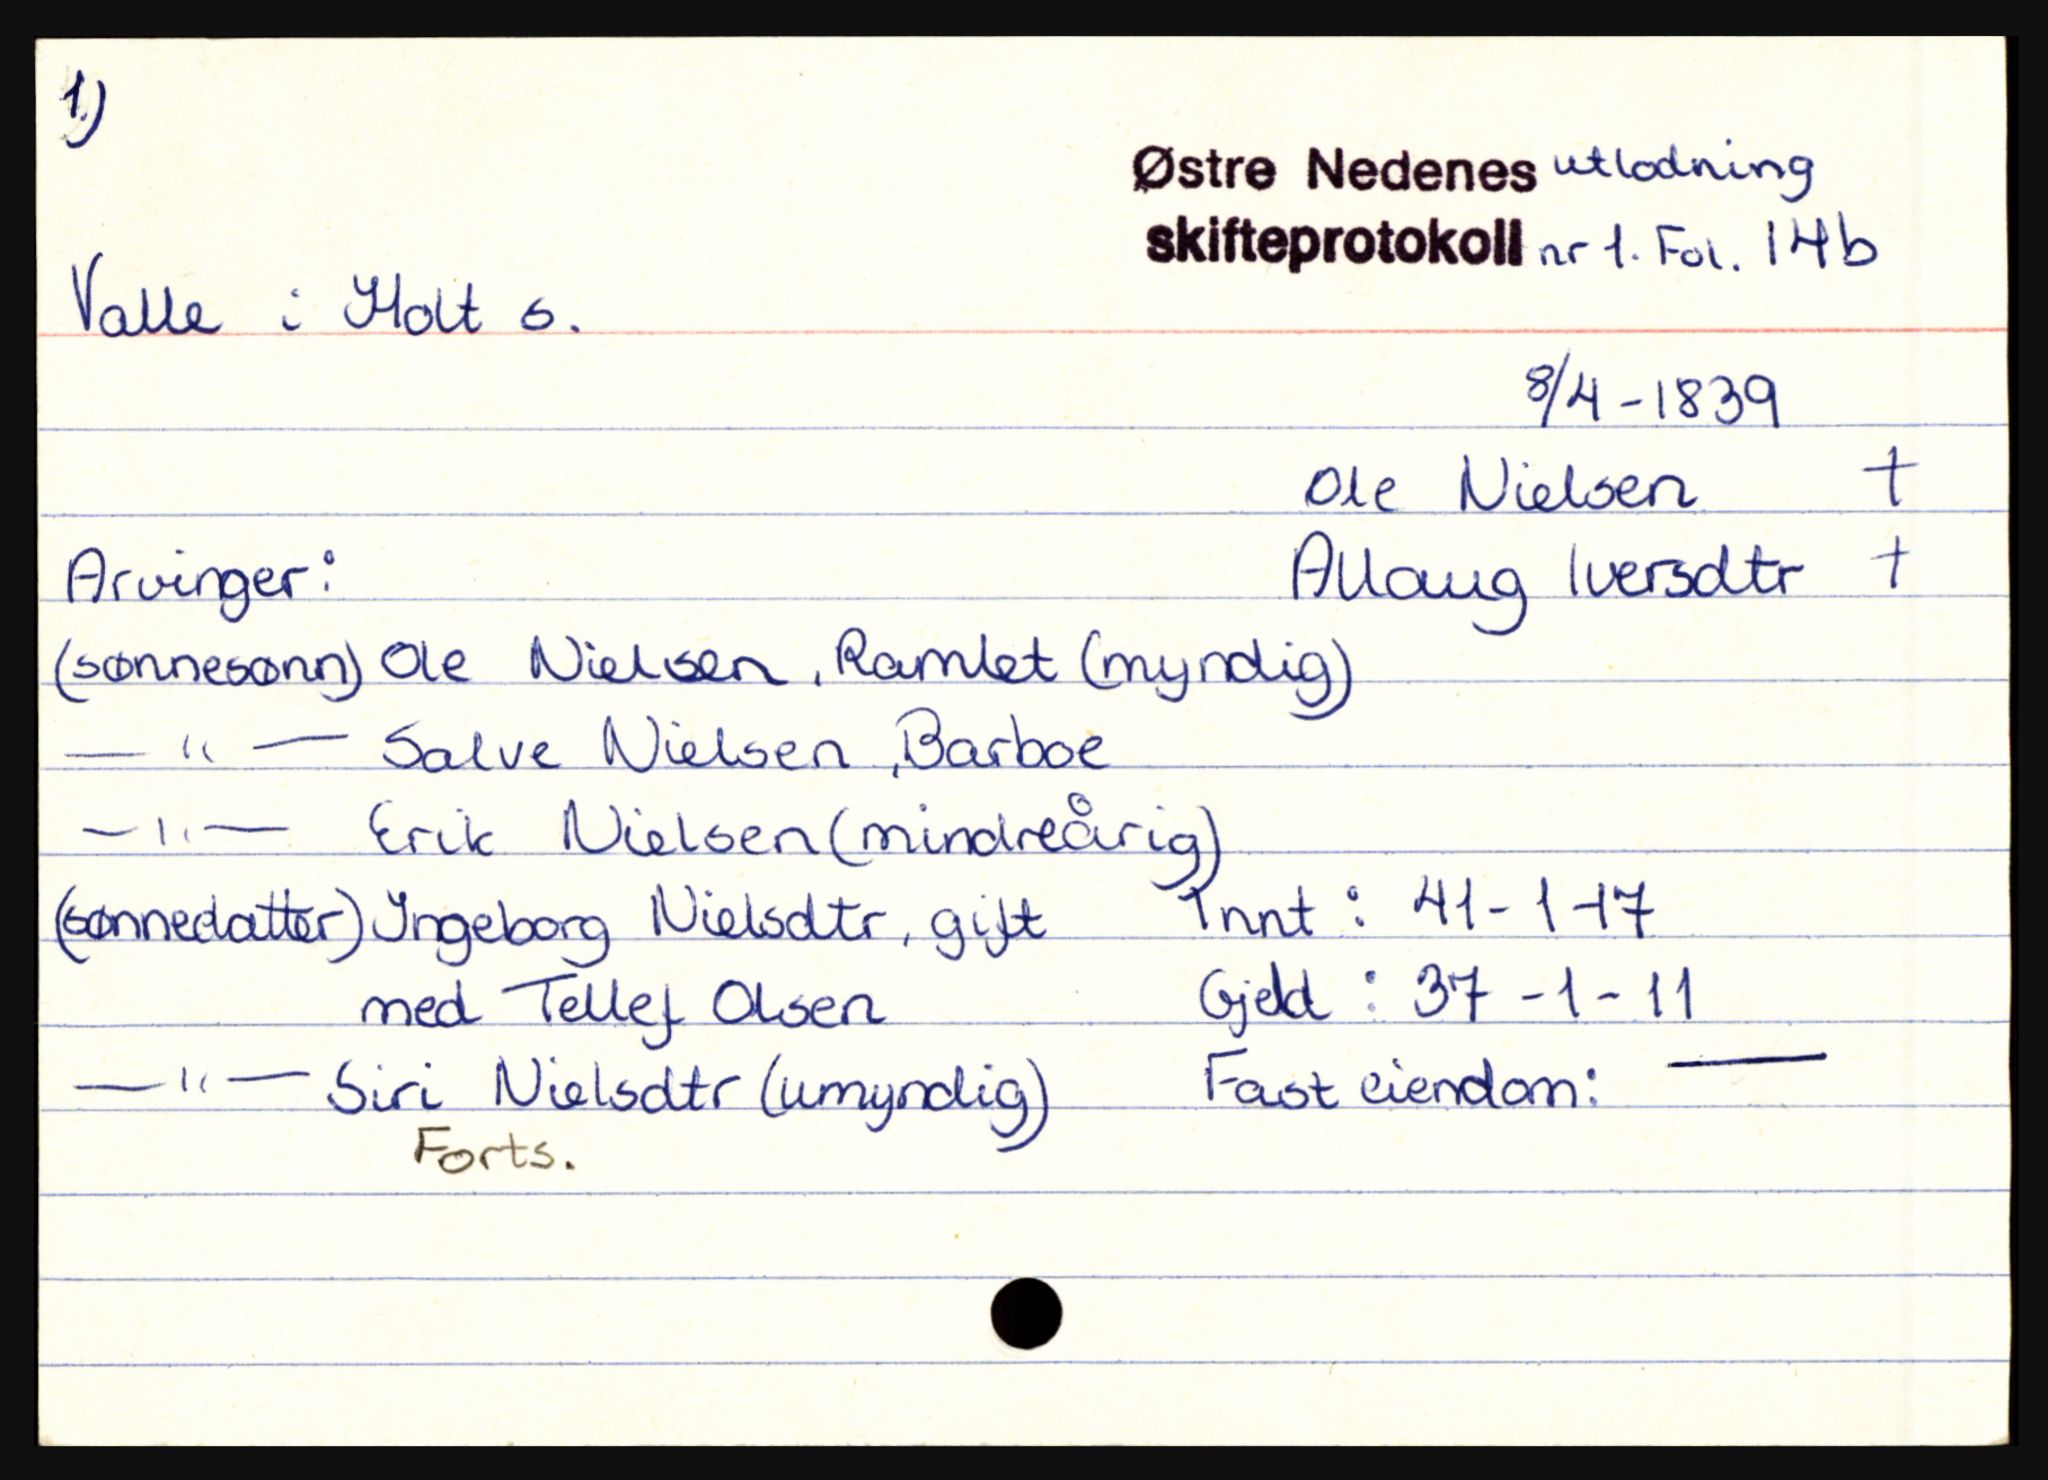 1)
Østre Nedenes utlodning
skifteprotokoll nr 1. Fol. 14b
Valle i Holt s.
8/4-1839
Ole Nielsen †
Arvinger: Allaug Iversdtr †
(sønnesønn) Ole Nielsen, Ramlet (myndig)
— " — Salve Nielsen, Barboe
— " — Erik Nielsen (mindreårig)
(sønnedatter) Ingeborg Nielsdtr, gift Innt: 41-1-17
med Tellef Olsen Gjeld: 37-1-11
— " — Siri Nielsdtr (umyndig) Fast eiendom: —
Forts.